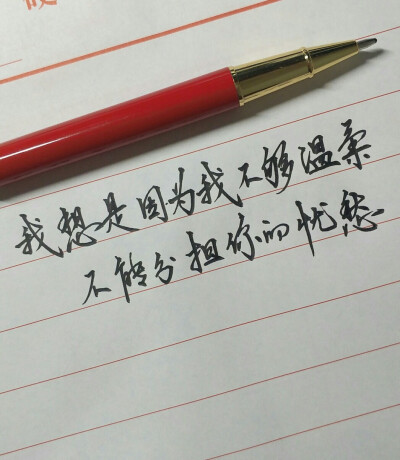 我想是因为我不够温柔
不能分担你的忧愁